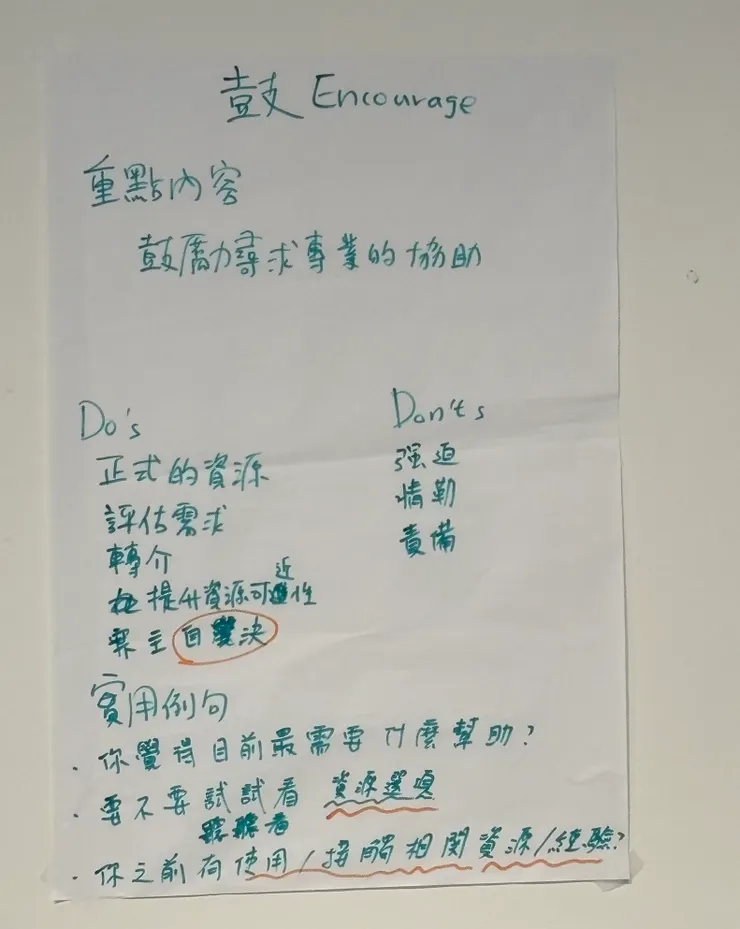 鼓 Encourage
重點內容
鼓勵尋求專業的協助
Do's
正式的資源
評估需求
轉介
提升資源可近性
案主自決
Don'ts
強迫
情勒
責備
實用例句
· 你覺得目前最需要什麼幫助?
· 要不要試試看 資源選項
聽聽看
· 你之前有使用/接觸相関資源/經驗?